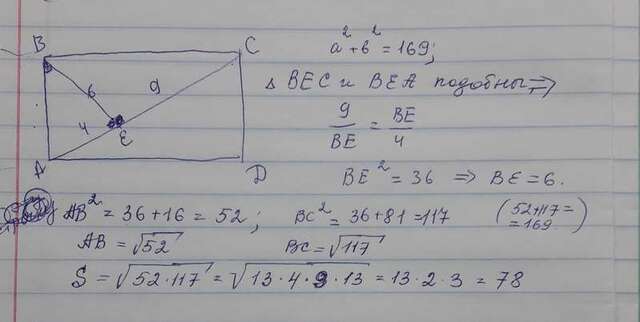 A B
4 6
E 9
D C
a² + b² = 169;
△ BEC и BEA подобны ⇒
9/BE = BE/4
BE² = 36 ⇒ BE = 6.
AB² = 36 + 16 = 52; BC² = 36 + 81 = 117 (52 + 117 = = 169)
AB = √52 BC = √117
S = √52·117 = √13·4·9·13 = 13·2·3 = 78